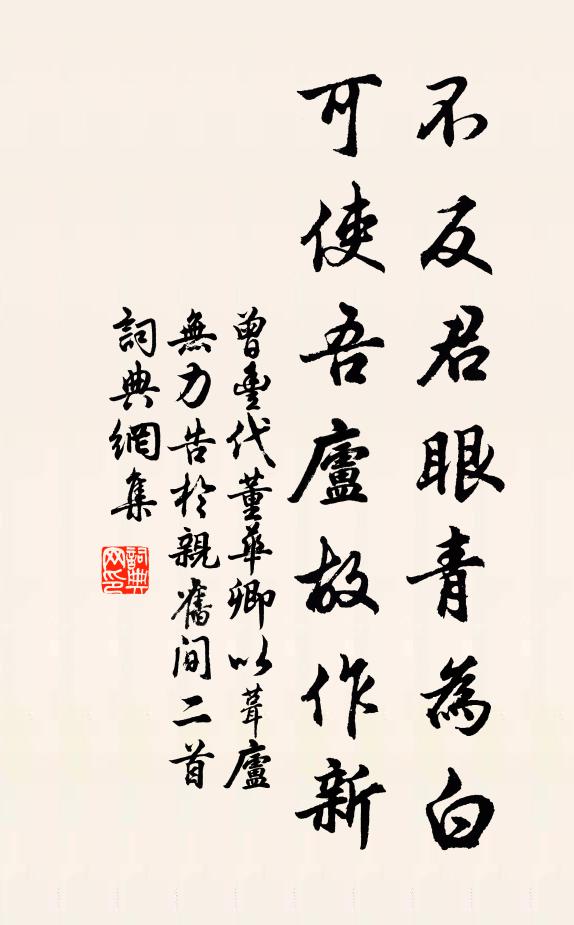 不反君眼青為白
可使吾廬故作新
曾豐代董華卿以葺廬
無力告於親舊間二首
詞典網集
詞典
网印